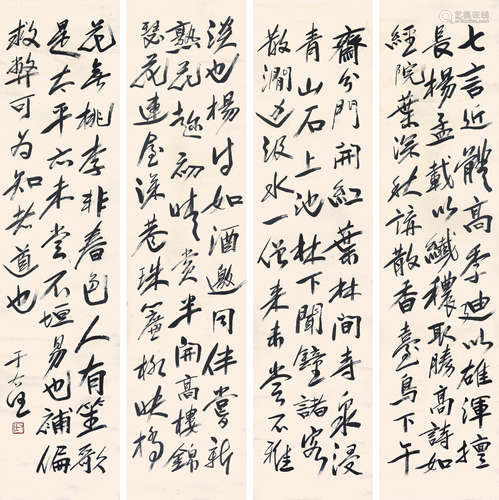 七言近體高季迪以雄渾擅
長楊孟載以纖穠取勝高詩如
經院葉深秋講散香臺鳥下午
齋兮門開紅葉林間寺泉浸
青山石上池林下聞鐘諸客
散澗邊级水一僧來未嘗不雅
淡也楊詩如酒邀同伴嘗新
熟花趁初晴賞半開高樓錦
瑟花連屋深巷珠簾柳映橋
花無桃李非春色人有笙歌
是太平亦未嘗不垣易也補偏
救弊可為知者道也
于右任